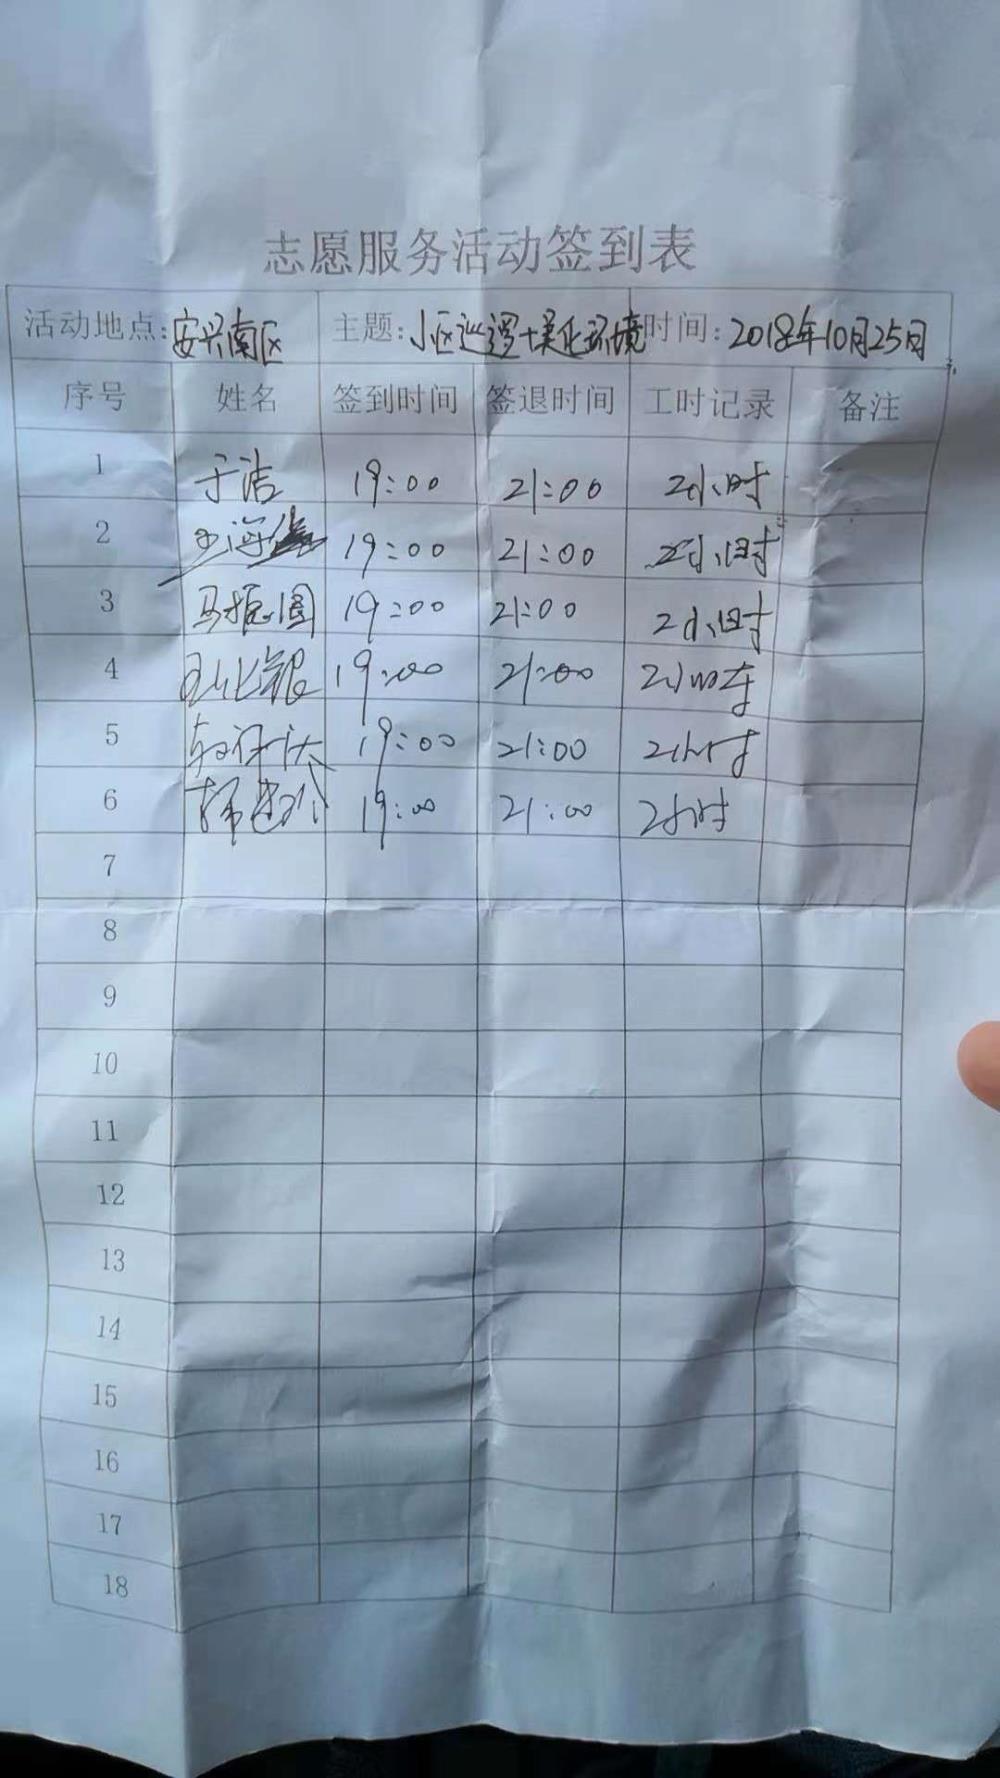 志愿服务活动签到表
活动地点:安兴南区 主题:小区巡逻+美化环境 时间:2018年10月25日
序号 姓名 签到时间 签退时间 工时记录 备注
1 于洁 19:00 21:00 2小时
2 19:00 21:00 2小时
3 马振国 19:00 21:00 2小时
4 19:00 21:00 2小时
5 19:00 21:00 2小时
6 19:00 21:00 2小时
7
8
9
10
11
12
13
14
15
16
17
18